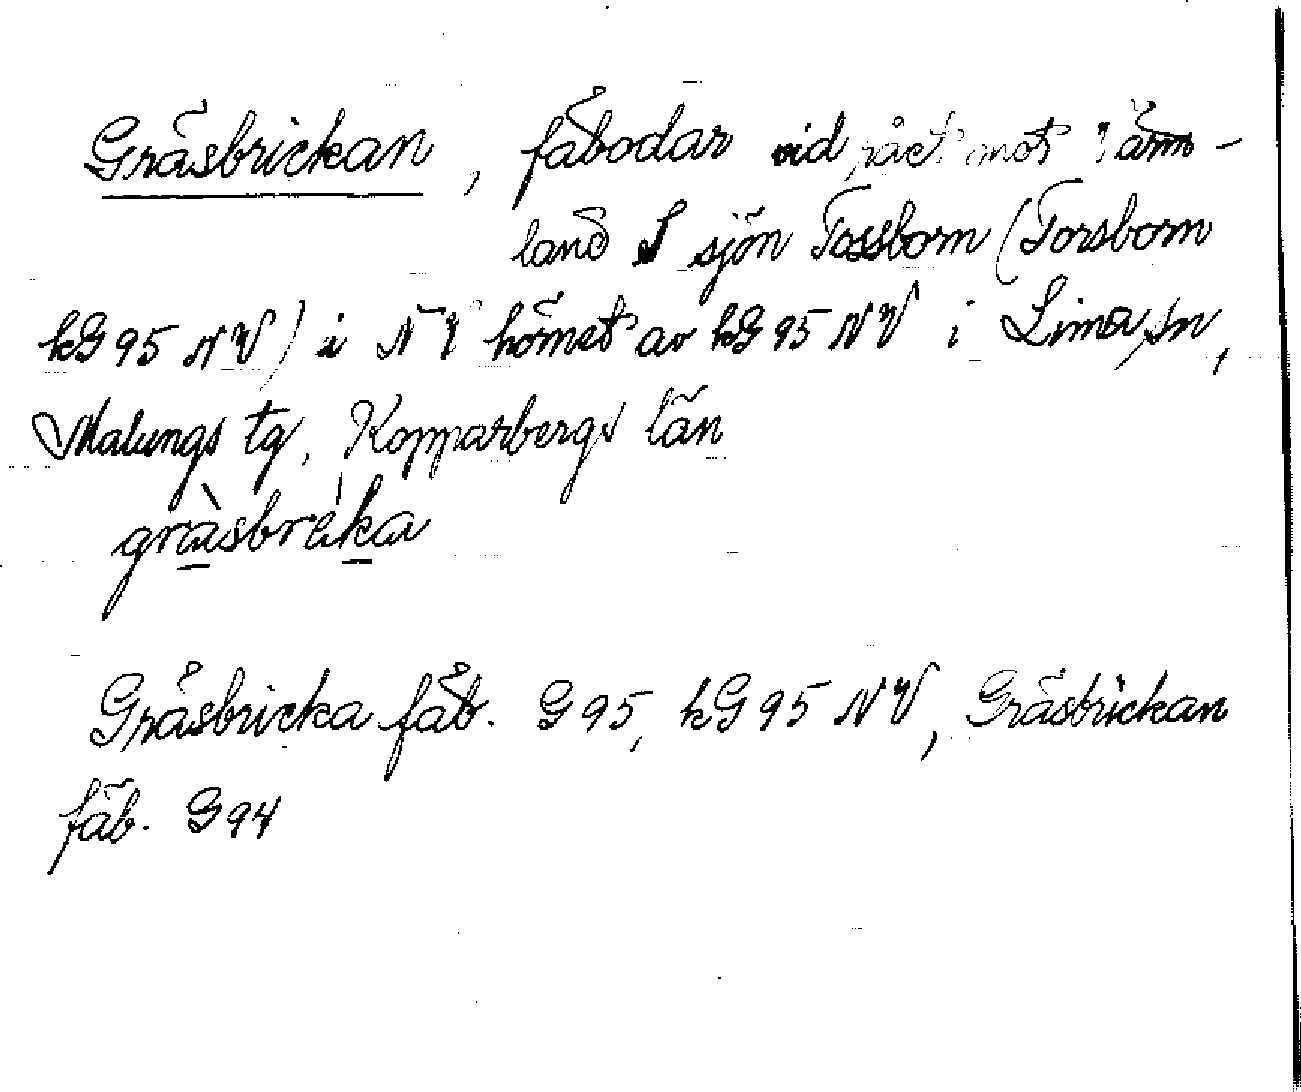 Gräsbrickan, fäbodar vid rået mot Värm-
land S sjön Tossborn (Torsborn
kG 95 NV) i NV hörnet av kG 95 NV i Lima sn,
Malungs tg, Kopparbergs län
gràsbrèka
Gräsbricka fäb. G 95, kG 95 NV, Gräsbrickan
fäb. G 94